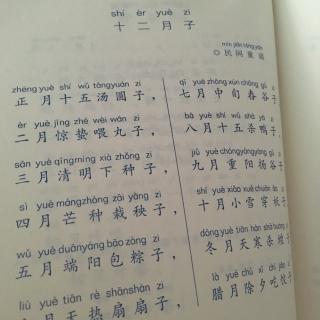 shí èr yuè zi
十二月子
mín jiān tóng yáo
◎民间童谣
zhēng yuè shí wǔ tāngyuán zi
正月十五汤圆子，
èr yuè jīng zhé wèi wán zi
二月惊蛰喂丸子，
sān yuè qīngmíng xià zhǒng zi
三月清明下种子，
sì yuè mángzhòng zāi yāng zi
四月芒种栽秧子，
wǔ yuè duānyáng bāo zòng zi
五月端阳包粽子，
liù yuè tiān rè shānshàn zi
六月天热扇扇子，
qī yuè zhōng xún chōng gǔ zi
七月中旬舂谷子
bā yuè shí wǔ shā yā zi
八月十五杀鸭子，
jiǔ yuè chóngyáng yáng gǔ zi
九月重阳扬谷子
shí yuè xiǎo xuě chuān
十月小雪穿袄子
dōng yuè tiān hán shā
冬月天寒杀
là yuè chú xī chī
腊月除夕吃